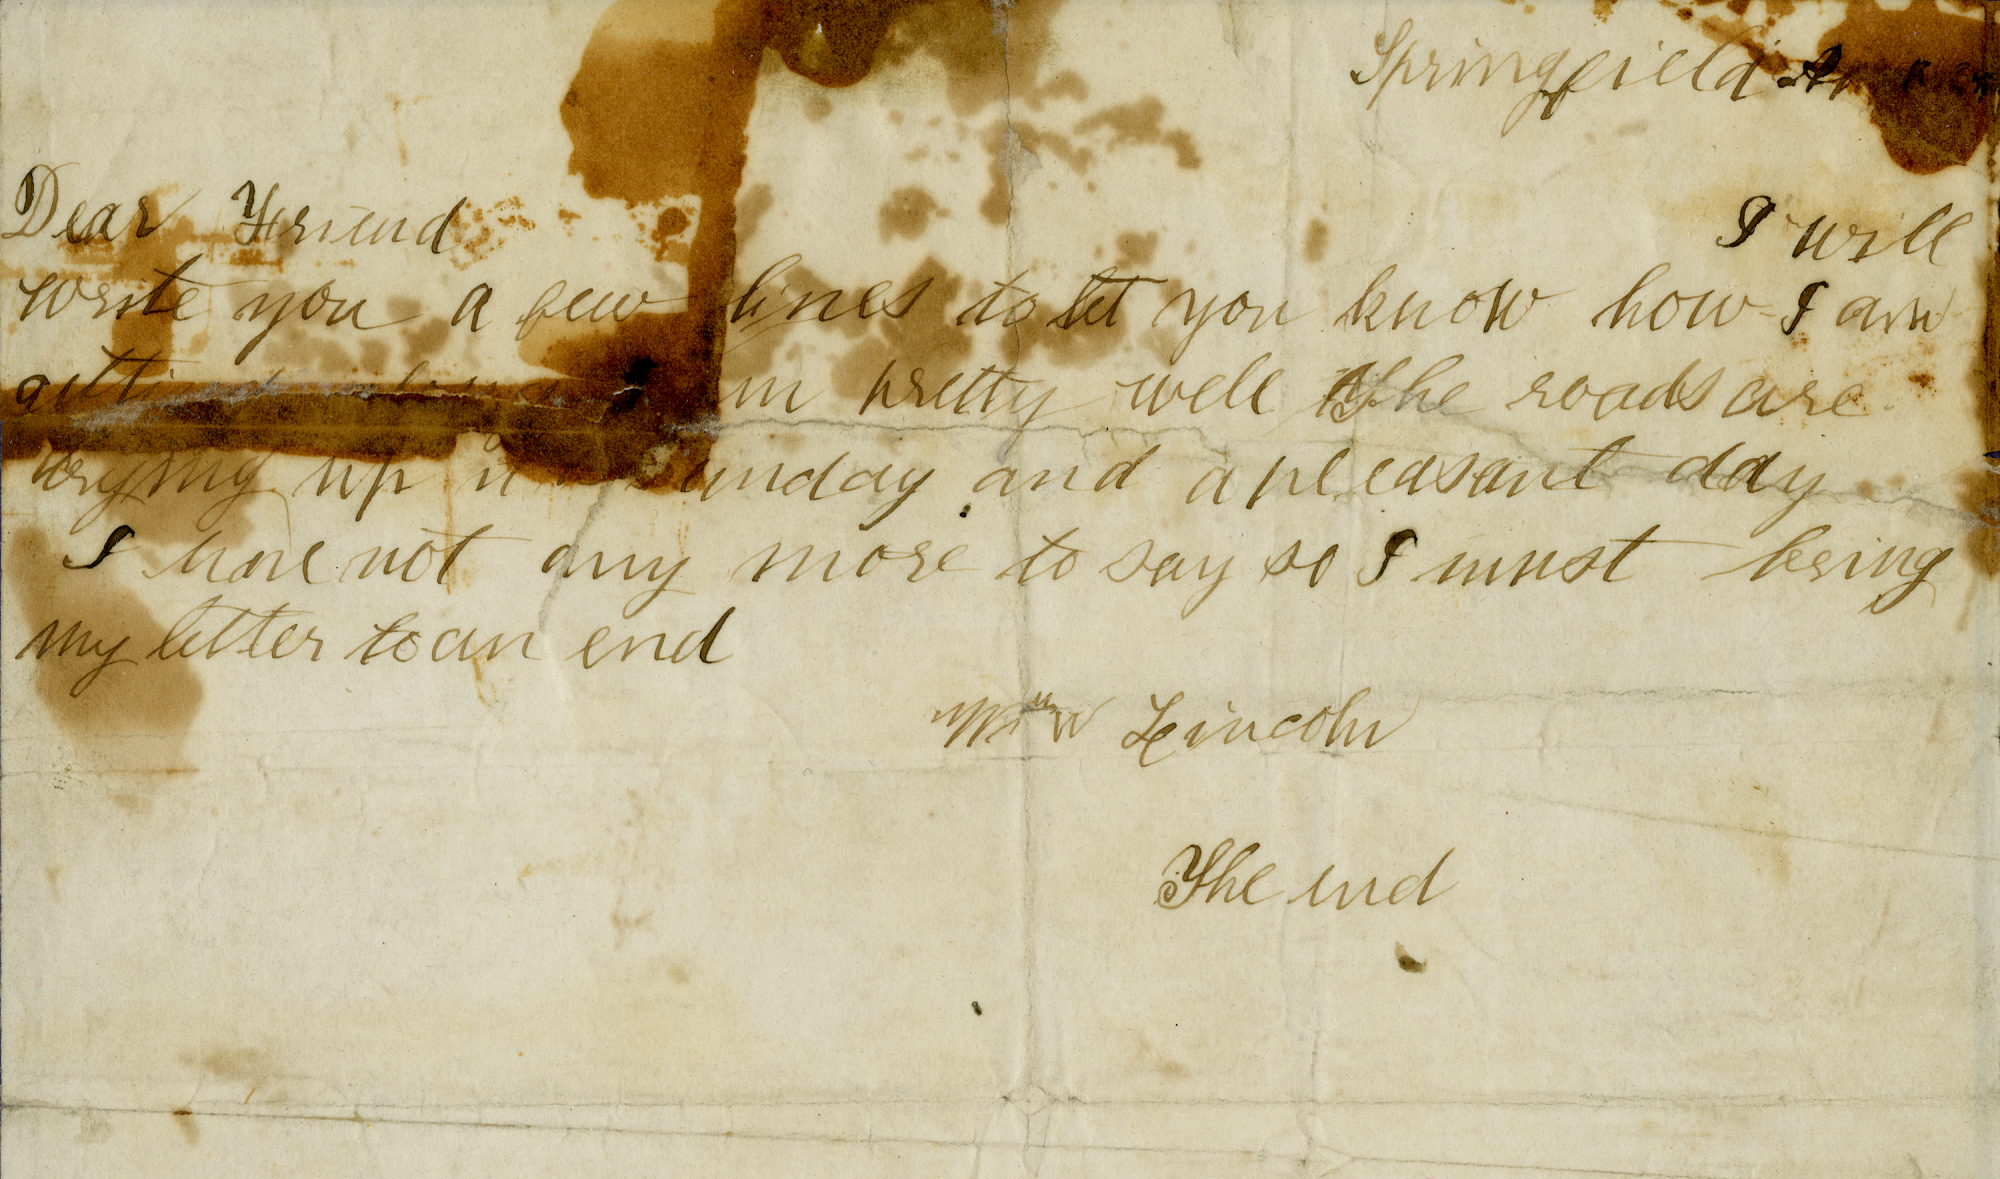 Springfield
Dear Friend
I will
write you a few lines to let you know how I am
getting along in pretty well The roads are
drying up it is sunday and a pleasant day
I have not any more to say so I must bring
my letter to an end
Wm W Lincoln
The end